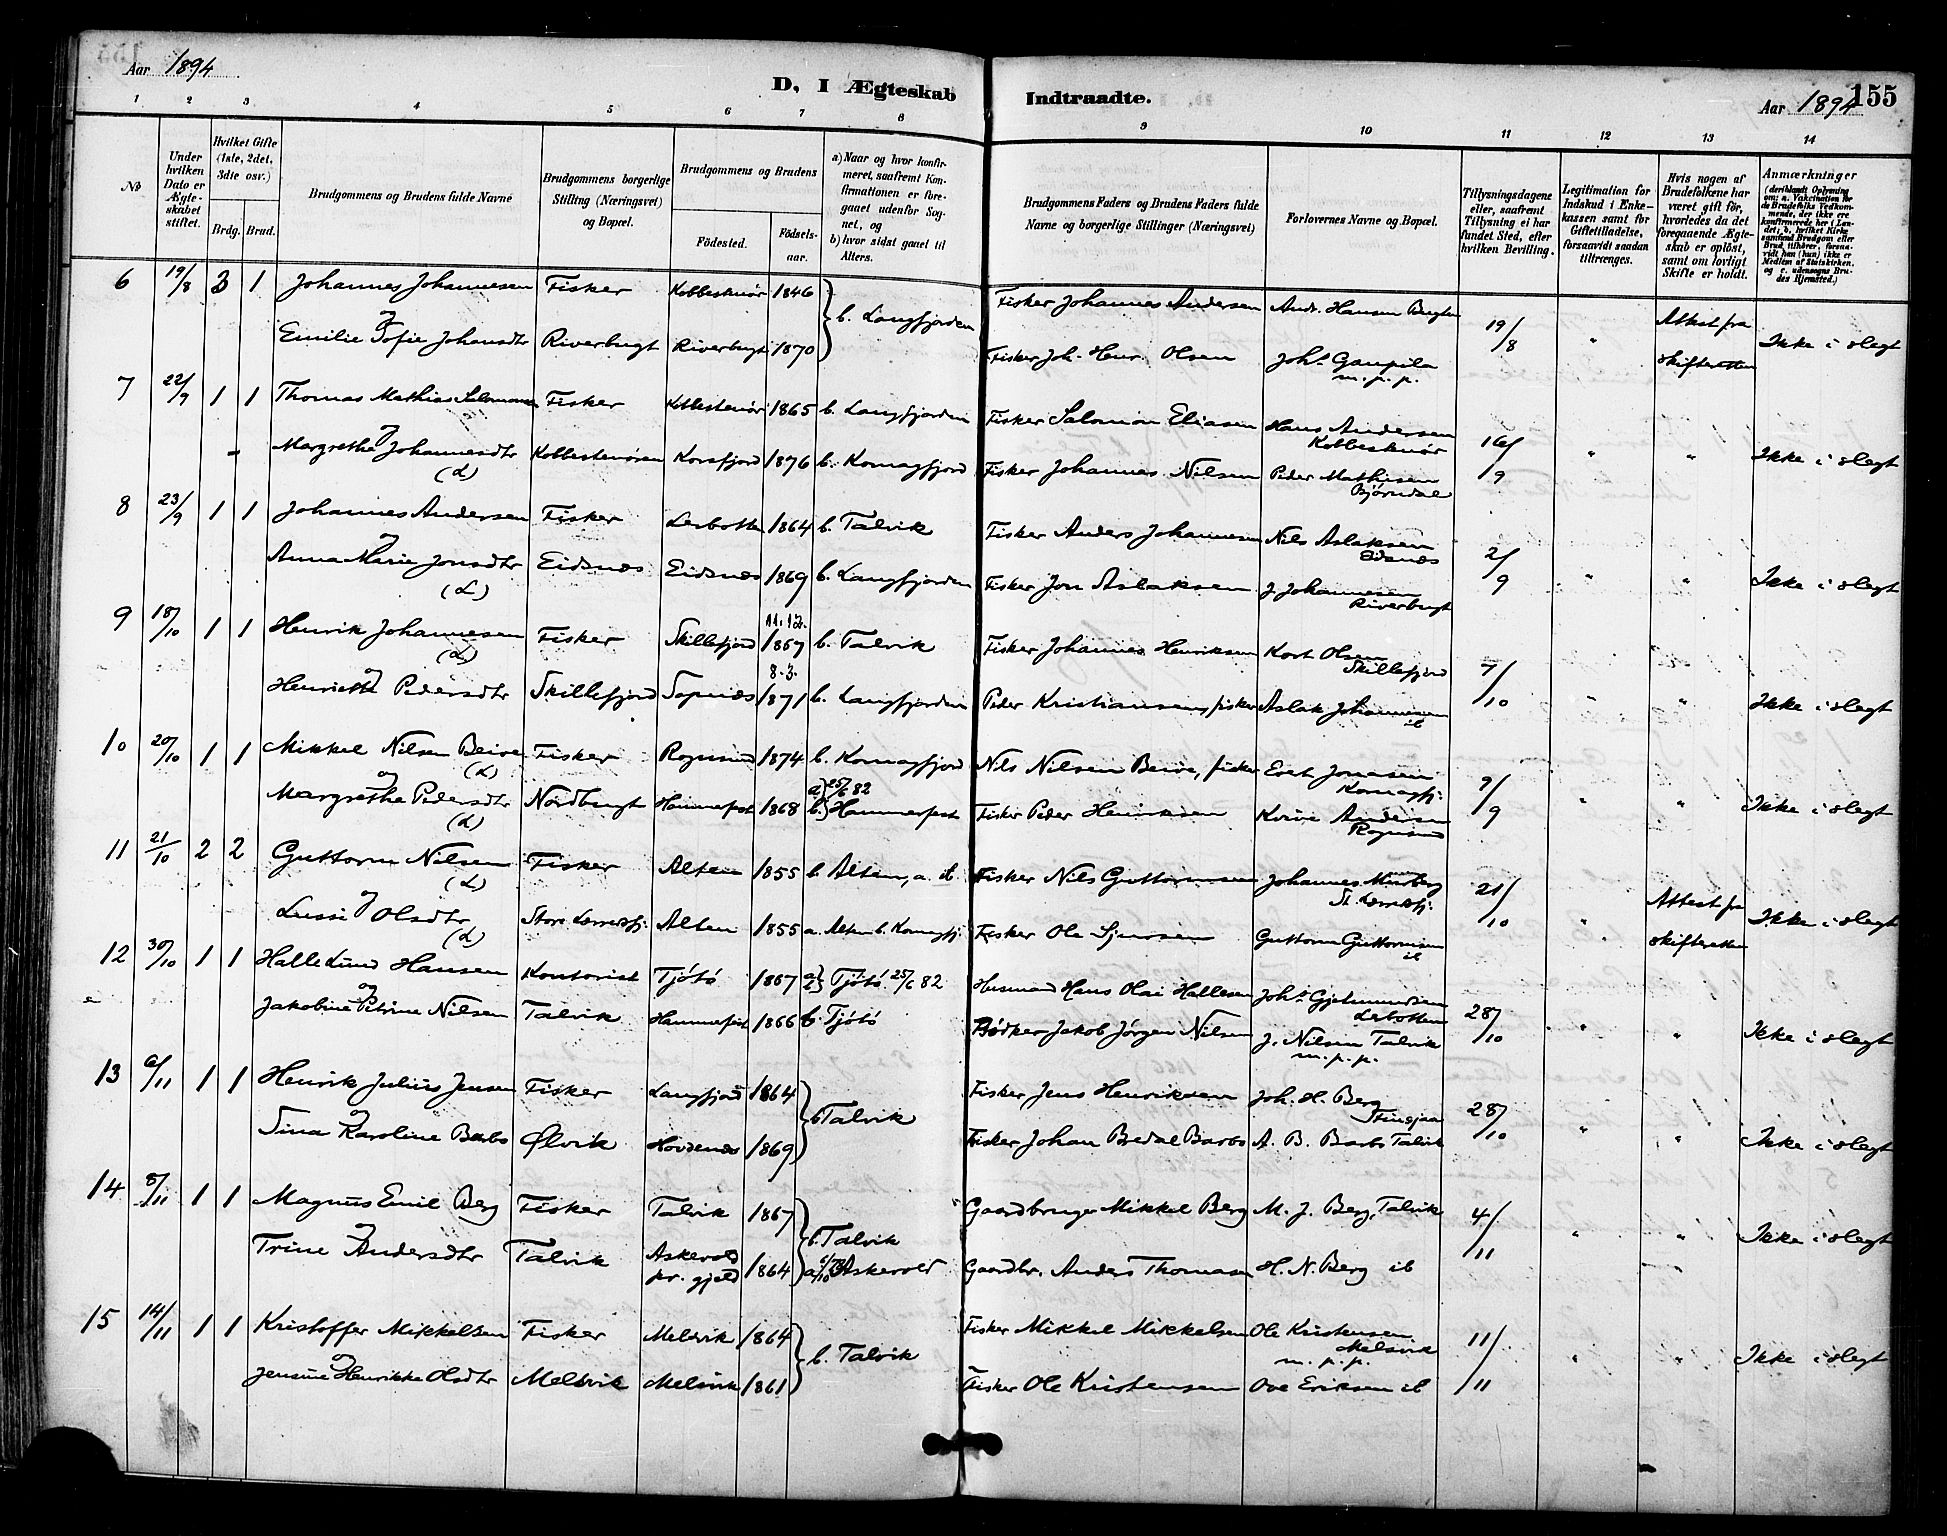 Aar 1894
D, I Ægteskab Indtraadte.
Aar 1894
155
1 2 3 4 5 6 7 8 9 10 11 12 13 14
No
Under hvilken Dato er Ægteskabet stiftet.
Hvilket Gifte (1ste, 2det, 3die osv.)
Brdg. Brud.
Brudgommens og Brudens fulde Navne
Brudgommens borgerlige Stilling (Næringsvei) og Bopæl.
Brudgommens og Brudens
Fødested.
Fødselsaar.
a) Naar og hvor konfirmeret, saafremt Konfirmationen er foregaaet udenfor Sognet, og
b) hvor sidst gaaet til Alters.
Brudgommens Faders og Brudens Faders fulde Navne og borgerlige Stillinger (Næringsvei)
Forlovernes Navne og Bopæl.
Tillysningsdagene eller, saafremt Tillysning ei har fundet Sted, efter hvilken Bevilling.
Legitimation for Indskud i Enkekassen samt for Giftetilladelse, forsaavidt saadan tiltrænges.
Hvis nogen af Brudefolkene har været gift før, hvorledes da det foregaaende Ægteskab er opløst, samt om lovligt Skifte er holdt.
Anmærkninger
6 19/8 3 1 Johannes Johannesen Fisker 1846 b. Langfjorden Fisker Johannes Andersen Andr. Hansen 19/8 " Attest fra skifteretten Ikke i slegt
og
Emilie Sofie Johansdtr Riverbugt Riverbugt 1870 Fisker Joh. Henr. Olsen Johs Gampila
m. p. p.
7 22/9 1 1 Thomas Mathias Salomonsen Fisker 1865 b. Langfjorden Fisker Salomon Eliasen Hans Andersen 16/9 " " Ikke i slegt
og
Margrethe Johannesdtr Korsfjord 1876 b. Komagfjord Fisker Johannes Nilsen Peder Mathisen
(L) Bjørndal
8 23/9 1 1 Johannes Andersen Fisker Lerbotten 1864 b. Talvik Fisker Anders Johannesen Nils Aslaksen 2/9 " " Ikke i slegt
og Eidsnæs
Anna Marie Jonsdtr Eidsnæs Eidsnæs 1869 b. Langfjorden Fisker Jon Aslaksen J. Johannesen
(L) Riverbugt
9 18/10 1 1 Henrik Johannesen Fisker Skillefjord 11.12. 1867 b. Talvik Fisker Johannes Henriksen Kort Olsen 7/10 " " Ikke i slegt
(L) Skillefjord
og
Henriette Pedersdtr Skillefjord Sopnæs 8.3. 1871 b. Langfjorden Peder Kristiansen, fisker Aslak Johannesen
ib
10 20/10 1 1 Mikkel Nilsen Beive Fisker Rognsund 1874 b. Komagfjord Nils Nilsen Beive, fisker Evet Jonasen 9/9 " " Ikke i slegt
(L) Komagfj.
og
Margrethe Pedersdtr Nordbugt Hammerfest 1868 a) 25/6 82 b) Hammerfest Fisker Peder Henriksen Andersen
(L) Rognsund
11 21/10 2 2 Guttorm Nilsen Fisker Alten 1855 b. Alten, a. ib Fisker Nils Guttormsen Johannes 21/10 " Attest fra skifteretten Ikke i slegt
(L) St. Lerresfj.
og
Lussi Olsdtr Store Lerresfj. Alten 1855 a. Alten b. Komagfj. Fisker Ole Guttorm Guttormsen
(L) ib
12 30/10 1 1 Halle Lund Hansen Kontorist Tjøtø 1867 a) b) Tjøtø 25/6 82 Husmand Hans Olai Hallesen Johs Gjetmundsen 28/10 " " Ikke i slegt
og Lerbotten
Jakobine Petrine Nilsen Talvik Hammerfest 1866 b. Tjøtø Bødker Jakob Jørgen Nilsen J. Nilsen Talvik
m. p. p.
13 6/11 1 1 Henrik Julius Jensen Fisker Langfjord 1864 b. Talvik Fisker Jens Henriksen Joh. H. Berg 28/10 " " Ikke i slegt
og
Sina Karoline Barbo Ølvik 1869 Fisker Johan Bredal Barbo A. B. Barbo Talvik
14 8/11 1 1 Magnus Emil Berg Fisker Talvik 1867 b. Talvik Gaardbruger Mikkel Berg M. J. Berg, Talvik 4/11 " " Ikke i slegt
og
Trine Andersdtr Talvik Askevold pr. gjeld 1864 a. Askevold Gaardbr. Anders Thomasen H. N. Berg ib
15 14/11 1 1 Kristoffer Mikkelsen Fisker Melsvik 1864 b. Talvik Fisker Mikkel Mikkelsen Ole Kristensen 11/11 " " Ikke i slegt
og Melsvik
m. p. p.
Jensine Henrikke Olsdtr Melsvik Melsvik 1861 Fisker Ole Kristensen Ove Eriksen ib